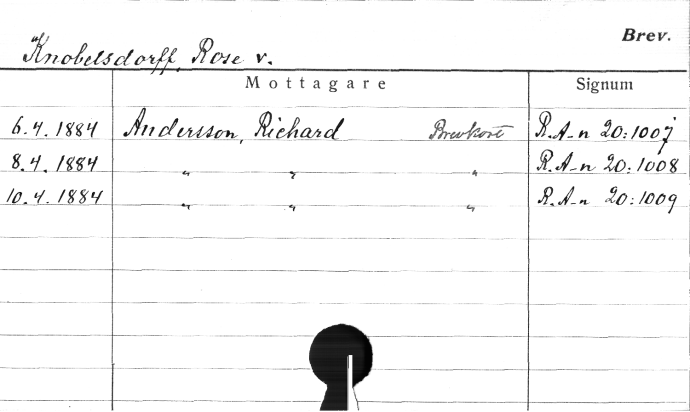 Brev.
Knobelsdorff, Rose v.
Mottagare Signum
6.4.1884 Andersson, Richard Brevkort R.A-n 20:1007
8.4.1884 " " " R.A-n 20:1008
10.4.1884 " " " R.A-n 20:1009